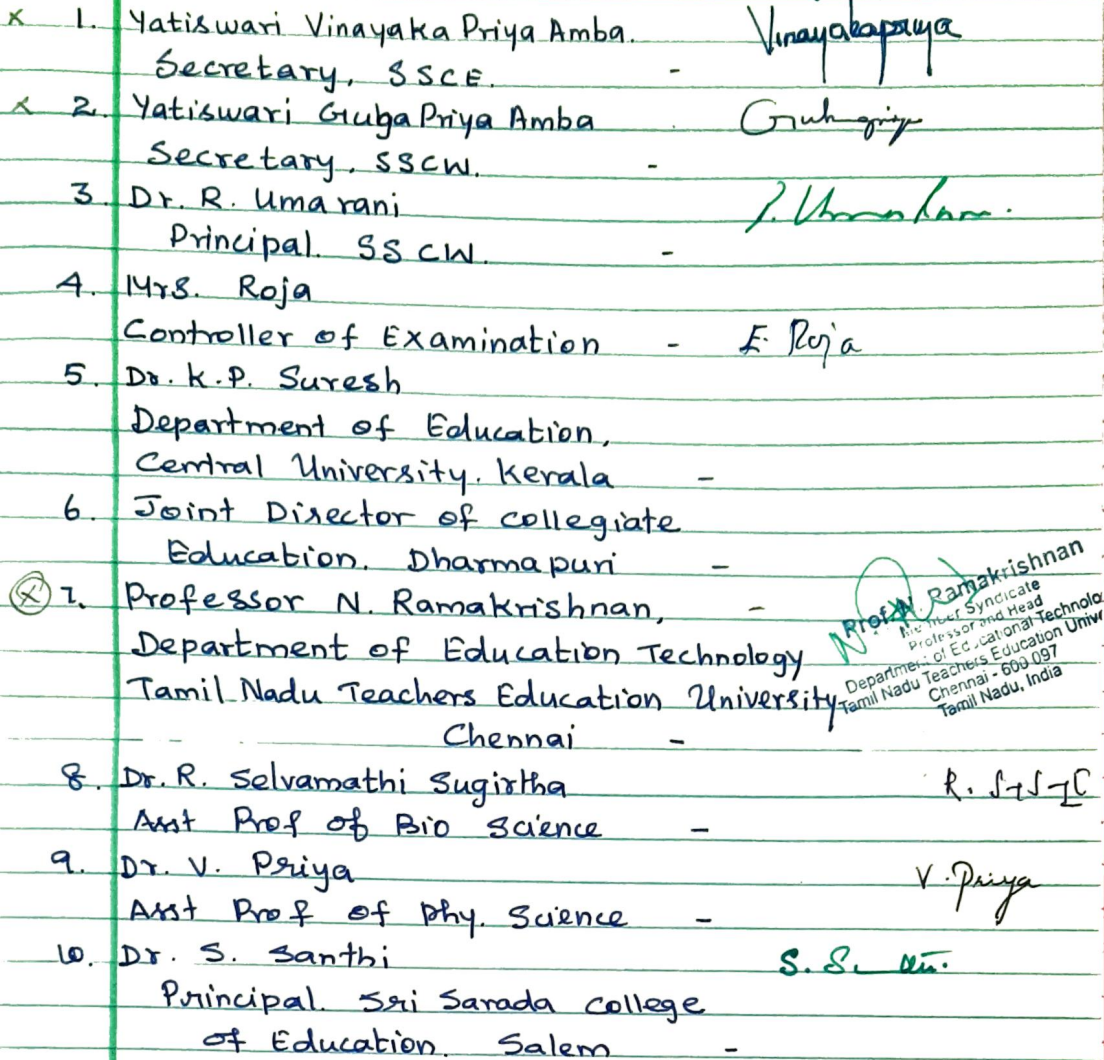 x 1. Yatiswari Vinayaka Priya Amba. Vinayakapriya
Secretary, SSCE. -
x 2. Yatiswari Guga Priya Amba
Secretary. SSCW. -
3. Dr. R. Uma rani
Principal. SSCW. -
4. Mrs. Roja
Controller of Examination - E. Roja
5. Dr. K.P. Suresh
Department of Education,
Central University. Kerala -
6. Joint Director of collegiate
Education. Dharmapuri -
x 7. Professor N. Ramakrishnan, -
Department of Education Technology
Tamil Nadu Teachers Education University
Chennai -
Prof. N. Ramakrishnan
Member Syndicate
Professor and Head
Department of Educational Technolo
Tamil Nadu Teachers Education Unive
Chennai - 600 097
Tamil Nadu, India
8. Dr. R. Selvamathi Sugirtha
Asst Prof of Bio Science -
9. Dr. V. Priya V. Priya
Asst Prof of Phy. Science -
10. Dr. S. Santhi
Principal. Sri Sarada college
of Education. Salem -